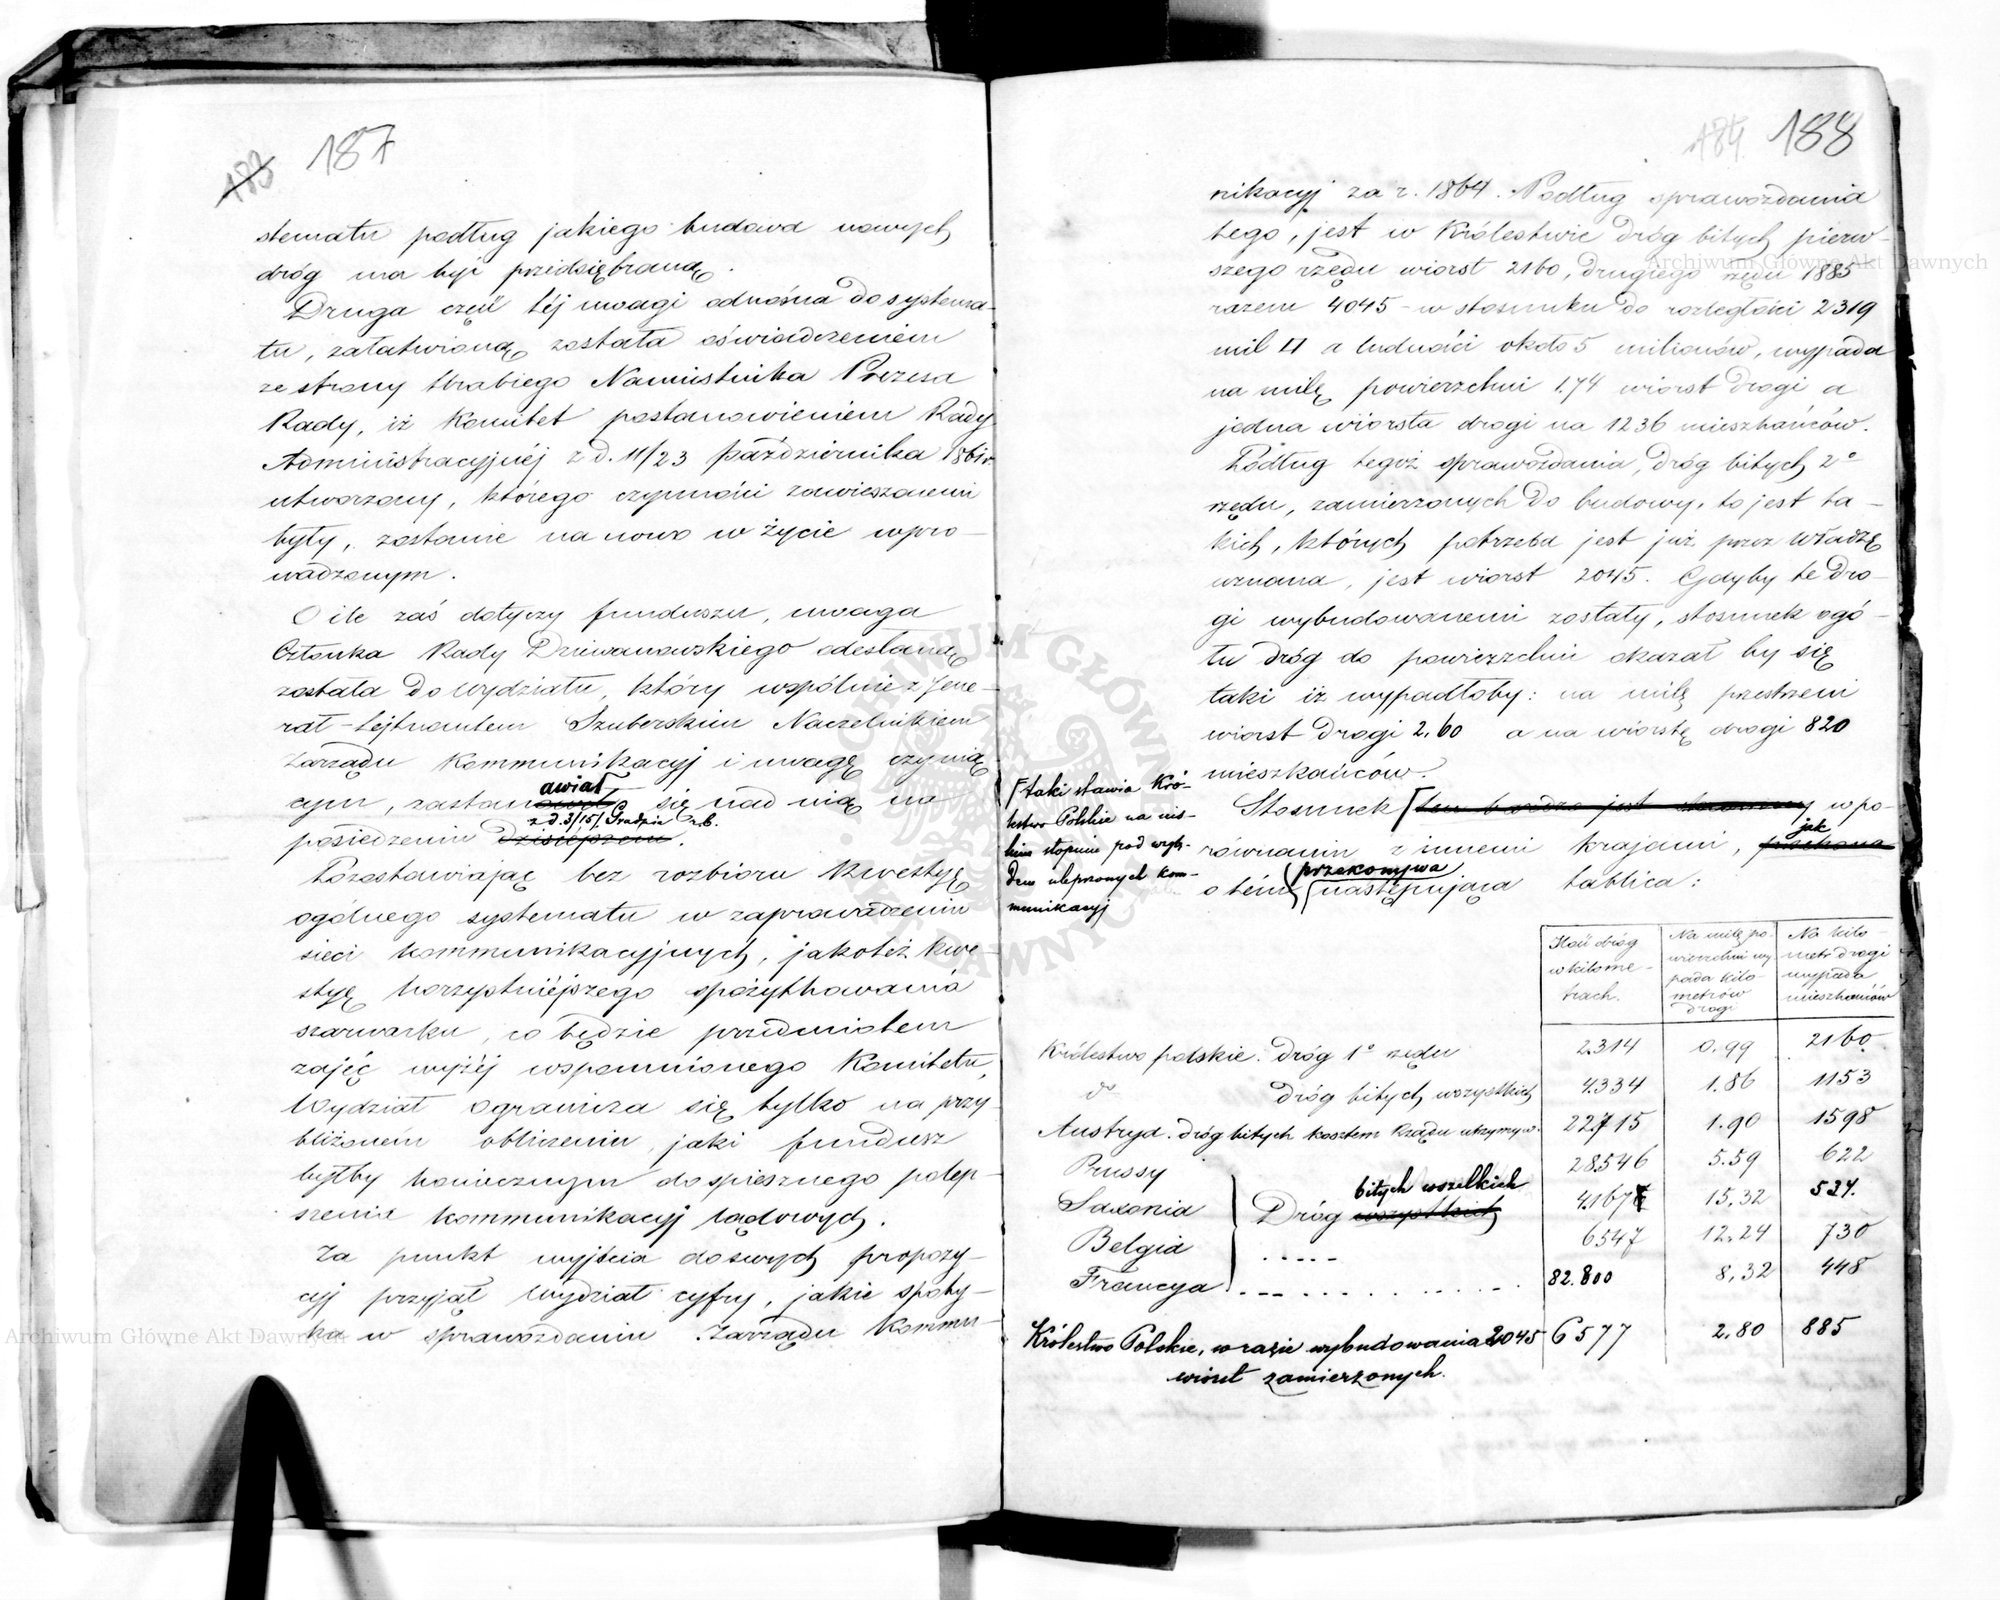 183 187
stematu podług jakiego budowa nowych
dróg ma być przedsiębraną.
Druga część téj uwagi odnośna do systema-
tu, załatwioną została oświadczeniem
ze strony Hrabiego Namiestnika Prezesa
Rady, iż Komitet postanowieniem Rady
Administracyjnéj z d. 11/23 Października 1861 r.
utworzony, którego czynności zawieszonemi
były, zostanie na nowo w życie wpro-
wadzonym.
O ile zaś dotyczy funduszu, uwaga
Członka Rady Dziewanowskiego odesłaną
została do Wydziału, który wspólnie z Jene-
rał-Lejtnantem Szuberskim Naczelnikiem
Zarządu Kommunikacyj i uwagę czynią-
awiał
cym, zastanowił się nad nią na
z d. 3/15/ Grudnia r.b.
posiedzeniu dzisiejszem.
Pozostawiając bez rozbioru kwestyę
ogólnego systematu w zaprowadzeniu
sieci kommunikacyjnych, jakoteż kwe-
styę korzystniéjszego spożytkowania
szarwarku, co będzie przedmiotem
zajęć wyżéj wspomnionego Komitetu,
Wydział ogranicza się tylko na przy-
bliżoném obliczeniu, jaki fundusz
byłby koniecznym do spiesznego polep-
szenia kommunikacyj lądowych.
Za punkt wyjścia do swych propozy-
cyj przyjął Wydział cyfry, jakie spoty-
ka w sprawozdaniu Zarządu Kommu-
184. 188
nikacyj za r. 1864. Podług sprawozdania
tego, jest w Królestwie dróg bitych pierw-
szego rzędu wiorst 2160, drugiego rzędu 1885
razem 4045 - w stosunku do rozległości 2319
mil □ a ludności około 5 milionów, wypada
na milę powierzchni 1.74 wiorst drogi a
jedna wiorsta drogi na 1236 mieszkańców.
Podług tegoż sprawozdania, dróg bitych 2o
rzędu, zamierzonych do budowy, to jest ta-
kich, których potrzeba jest już przez Władzę
uznana, jest wiorst 2045. Gdyby te dro-
gi wybudowanemi zostały, stosunek ogó-
łu dróg do powierzchni okazał by się
taki iż wypadłoby: na milę przestrzeni
wiorst drogi 2.60 a na wiorstę drogi 820
mieszkańców.
taki stawia Kró-
lestwo Polskie na nis-
kim stopniu pod wzglę-
dem ulepszonych kom-
munikacyj
Stosunek ten bardzo jest w po-
jak
równaniu z innemi krajami, przekona
przekonywa
o tém następująca tablica:
Ilość dróg w kilome- trach. Na milę po- wierzchni wy- pada kilo- metrów drogi Na kilo- metr drogi wypada mieszkańców
Królestwo polskie. dróg 1o rzędu 2.314 0.99 2160
do dróg bitych wszystkich 4.334 1.86 1153
Austrya. dróg bitych kosztem Rządu utrzymyw. 22.715 1.90 1598
Prussy 28.546 5.59 622
bitych wszelkich
Saxonia Dróg wszystkich 4.167 15,32 524.
Belgia ..... 6547 12.24 730
Francya ........... 82.800 8,32 448
Królestwo Polskie, w razie wybudowania 2045 6577 2.80 885
wiorst zamierzonych.
Archiwum Główne Akt Dawnych
Archiwum Główne Akt Dawnych
ARCHIWUM GŁÓWNE AKT DAWNYCH